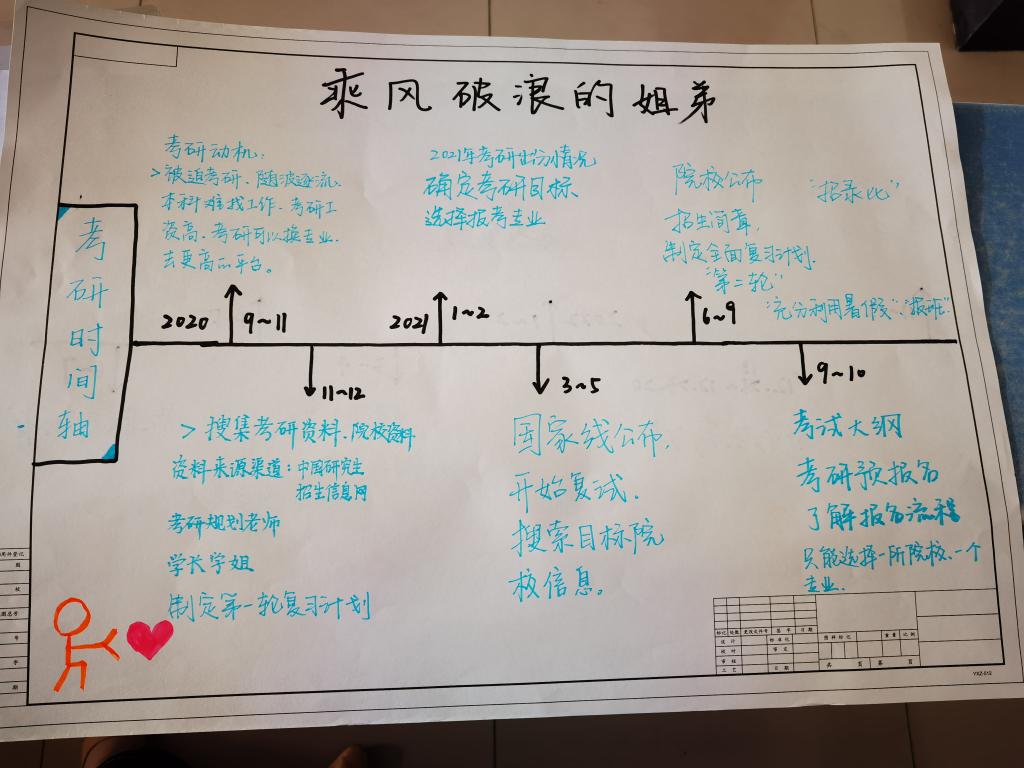 乘风破浪的姐弟
考研时间轴
考研动机:
>被迫考研、随波逐流、
本科难找工作、考研工
资高、考研可以换专业、
去更高的平台。
2021年考研出分情况
确定考研目标
选择报考专业
院校公布 "招录比"
招生简章,
制定全面复习计划.
"第二轮"
"充分利用暑假"、"报班"
2020
9~11
2021
1~2
6~9
11~12
3~5
9~10
>搜集考研资料、院校资料
资料来源渠道:中国研究生
招生信息网
考研规划老师
学长学姐
制定第一轮复习计划
国家线公布,
开始复试.
搜索目标院
校信息。
考试大纲
考研预报名
了解报名流程
只能选择一所院校、一个
专业.
标记 处数 更改文件号 签字 日期
设计 标准化
校对 审定
审核
工艺 日期
图样标记 重量 比例
共 页 第 页
YXZ-012